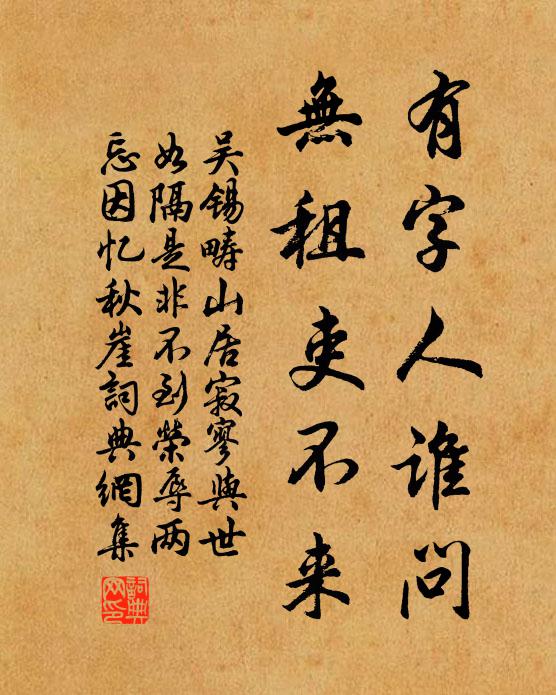 有字人谁问
無租吏不来
吴锡畴山居寂寥与世
如隔是非不到榮辱两
忘因忆秋崖詞典網集
詞典网印